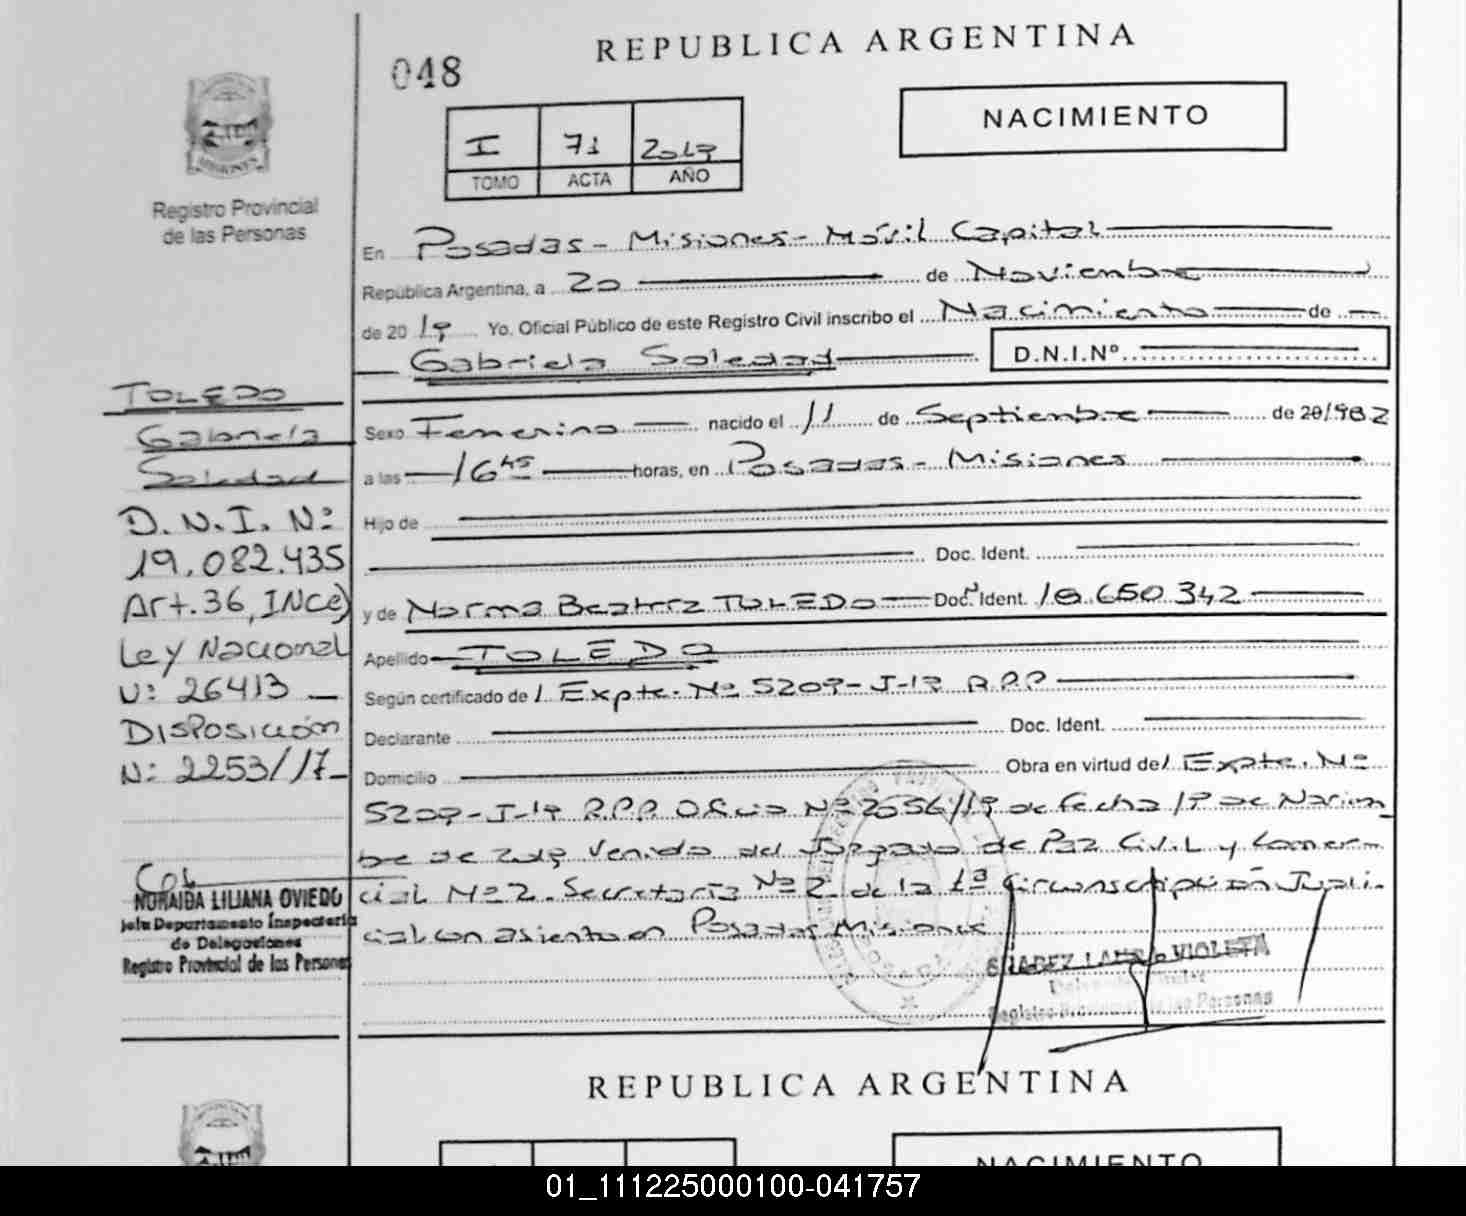 REPUBLICA ARGENTINA
048
NACIMIENTO
I 71
TOMO ACTA AÑO
Registro Provincial
de las Personas
En Posadas - Misiones - Móvil Capital
República Argentina, a 20 de Noviembre
de 20 Yo, Oficial Público de este Registro Civil inscribo el Nacimiento de
Gabriela Soledad D.N.I.Nº
TOLEDO
Gabriela
Soledad
D.N.I. Nº
19.082.435
Art. 36, INCe)
Ley Nacional
Nº 26413
DISPOSICIÓN
Nº 2253/17
Sexo Femenino nacido el 11 de Septiembre de 20/982
a las 16 45 horas, en Posadas - Misiones
Hijo de
Doc. Ident.
y de Norma Beatriz TOLEDO Doc. Ident. 16.650.342
Apellido TOLEDO
Según certificado de Expte. Nº R.P.P
Declarante Doc. Ident.
Domicilio Obra en virtud de Expte. Nº
R.P.P. Oficio Nº 2056/ de fecha de Noviem
bre de venido del Juzgado de Paz Civil y Comer
cial Nº 2. Secretaría Nº 2 de la 1ª Circunscripción Judi
cial con asiento en Posadas Misiones
NORAIDA LILIANA OVIEDO
Jefa Departamento Inspectoría
de Delegaciones
Registro Provincial de las Personas
SUAREZ VIOLETA
Registro Provincial de las Personas
REPUBLICA ARGENTINA
NACIMIENTO
01_111225000100-041757